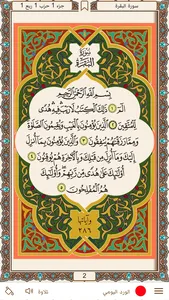 سورة البقرة
جزء 1 حزب 1 ربع 1
سُورَةُ
البَقَرَةِ
بِسْمِ اللَّهِ الرَّحْمَٰنِ الرَّحِيمِ
الٓمٓ ١ ذَٰلِكَ الْكِتَٰبُ لَا رَيْبَ ۛ فِيهِ ۛ هُدًى
لِّلْمُتَّقِينَ ٢ الَّذِينَ يُؤْمِنُونَ بِالْغَيْبِ وَيُقِيمُونَ الصَّلَوٰةَ
وَمِمَّا رَزَقْنَٰهُمْ يُنفِقُونَ ٣ وَالَّذِينَ يُؤْمِنُونَ بِمَا أُنزِلَ
إِلَيْكَ وَمَا أُنزِلَ مِن قَبْلِكَ وَبِالْآخِرَةِ هُمْ يُوقِنُونَ ٤
أُولَٰئِكَ عَلَىٰ هُدًى مِّن رَّبِّهِمْ ۖ وَأُولَٰئِكَ
هُمُ الْمُفْلِحُونَ ٥
وآياتها
٢٨٦
2
الورد اليومي
تلاوة